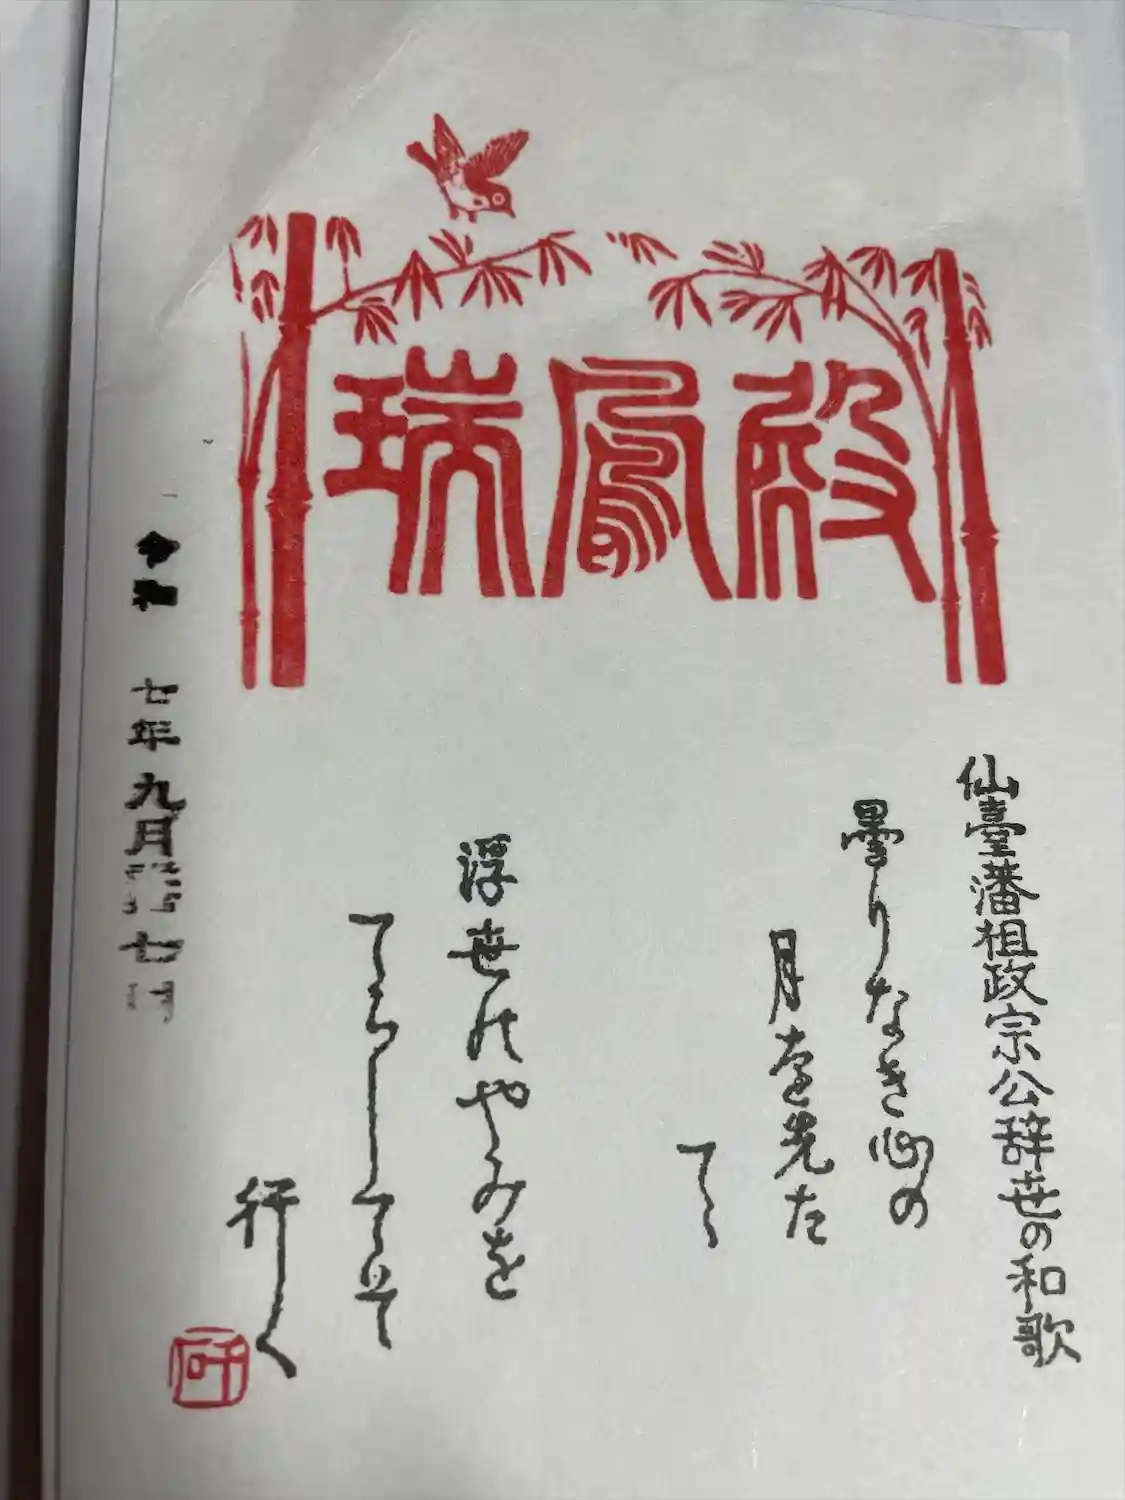 瑞鳳殿
仙臺藩祖政宗公辞世の和歌
曇りなき心の
月を先た
てゝ
浮世のやみを
てらしてそ
行く
令和 七年 九月 廿 七 日